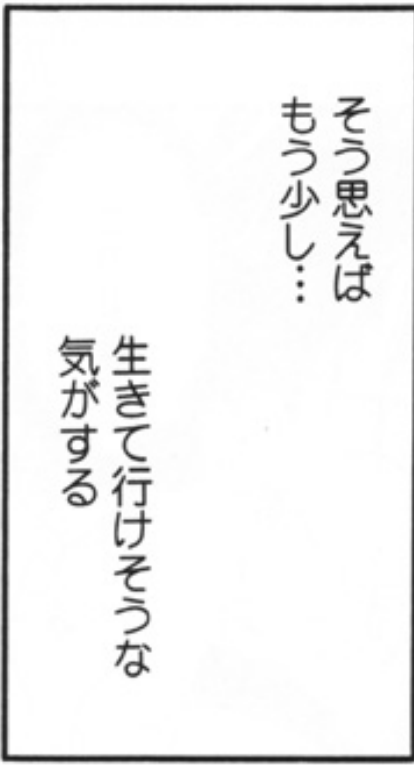 そう思えば
もう少し…
生きて行けそうな
気がする